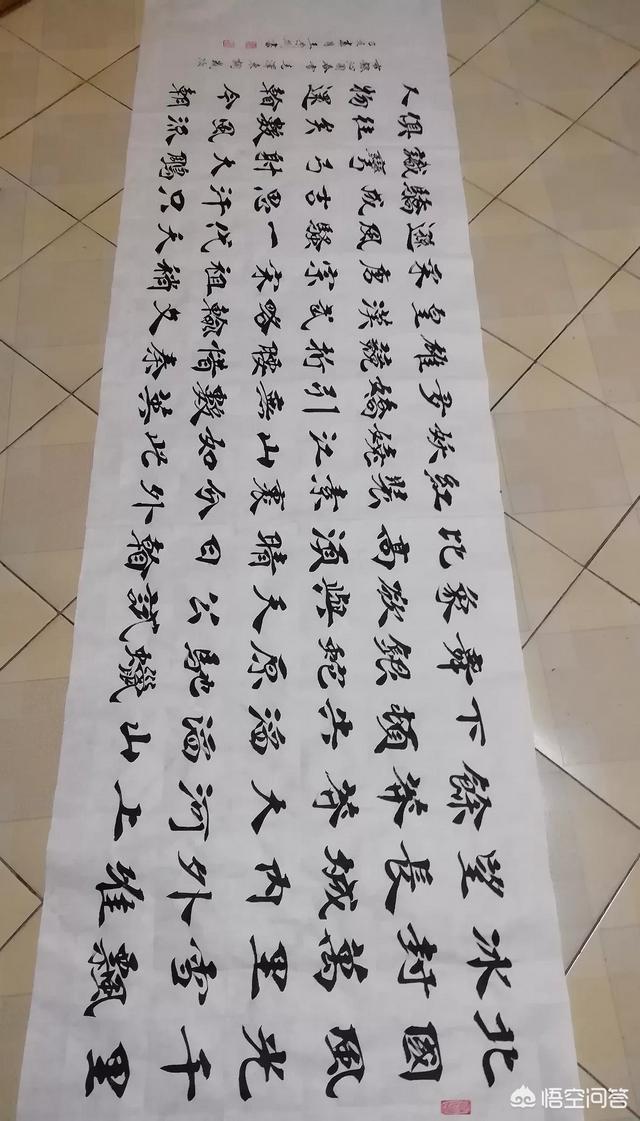 北國風光千里
冰封萬里雪飄
望長城內外惟
餘莽莽大河上
下頓失滔滔山
舞銀蛇原馳蠟
象欲與天公試
比高須晴日看
紅裝素裹分外
妖嬈江山如此
多嬌引無數英
雄競折腰惜秦
皇漢武略輸文
采唐宗宋祖稍
遜風騷一代天
驕成吉思汗只
識彎弓射大鵰
俱往矣數風流
人物還看今朝
沁園春雪 毛澤東詞
己亥
悟空问答